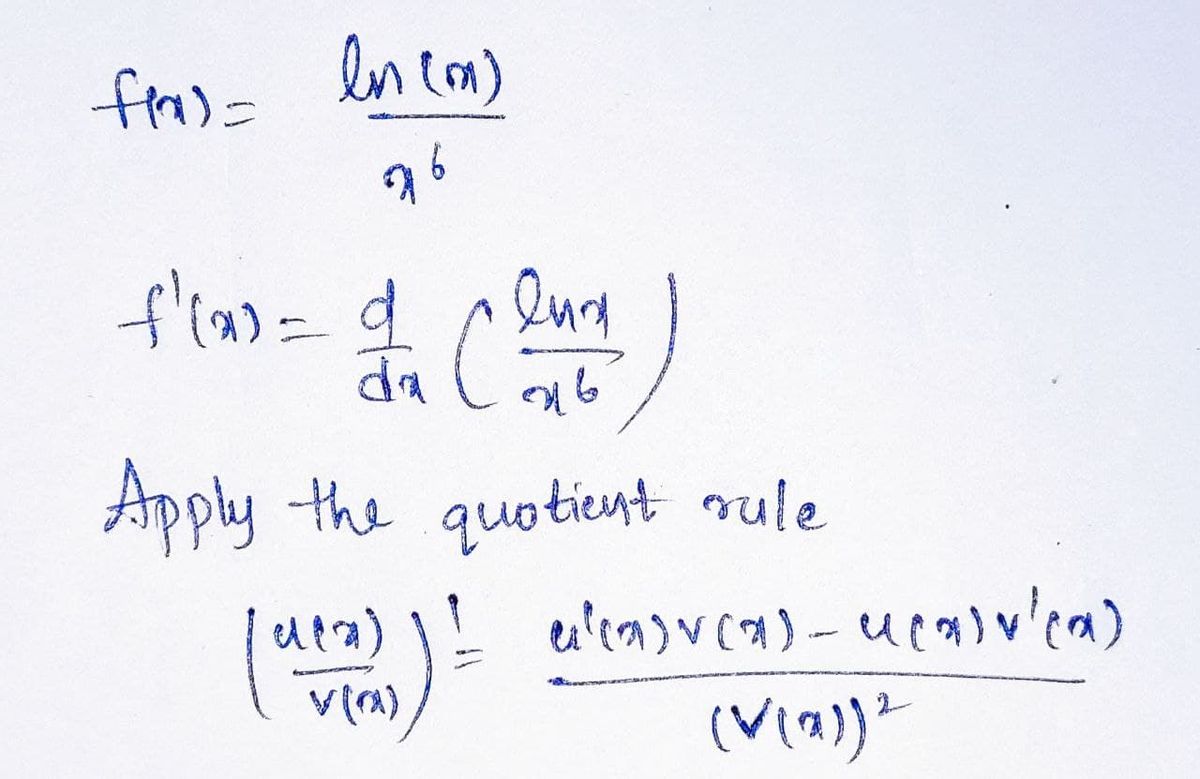 f(x) = ln(x) / x^6
f'(x) = d/dx ( lnx / x^6 )
Apply the quotient rule
( u(x) / v(x) )' = u'(x)v(x) - u(x)v'(x) / (v(x))^2